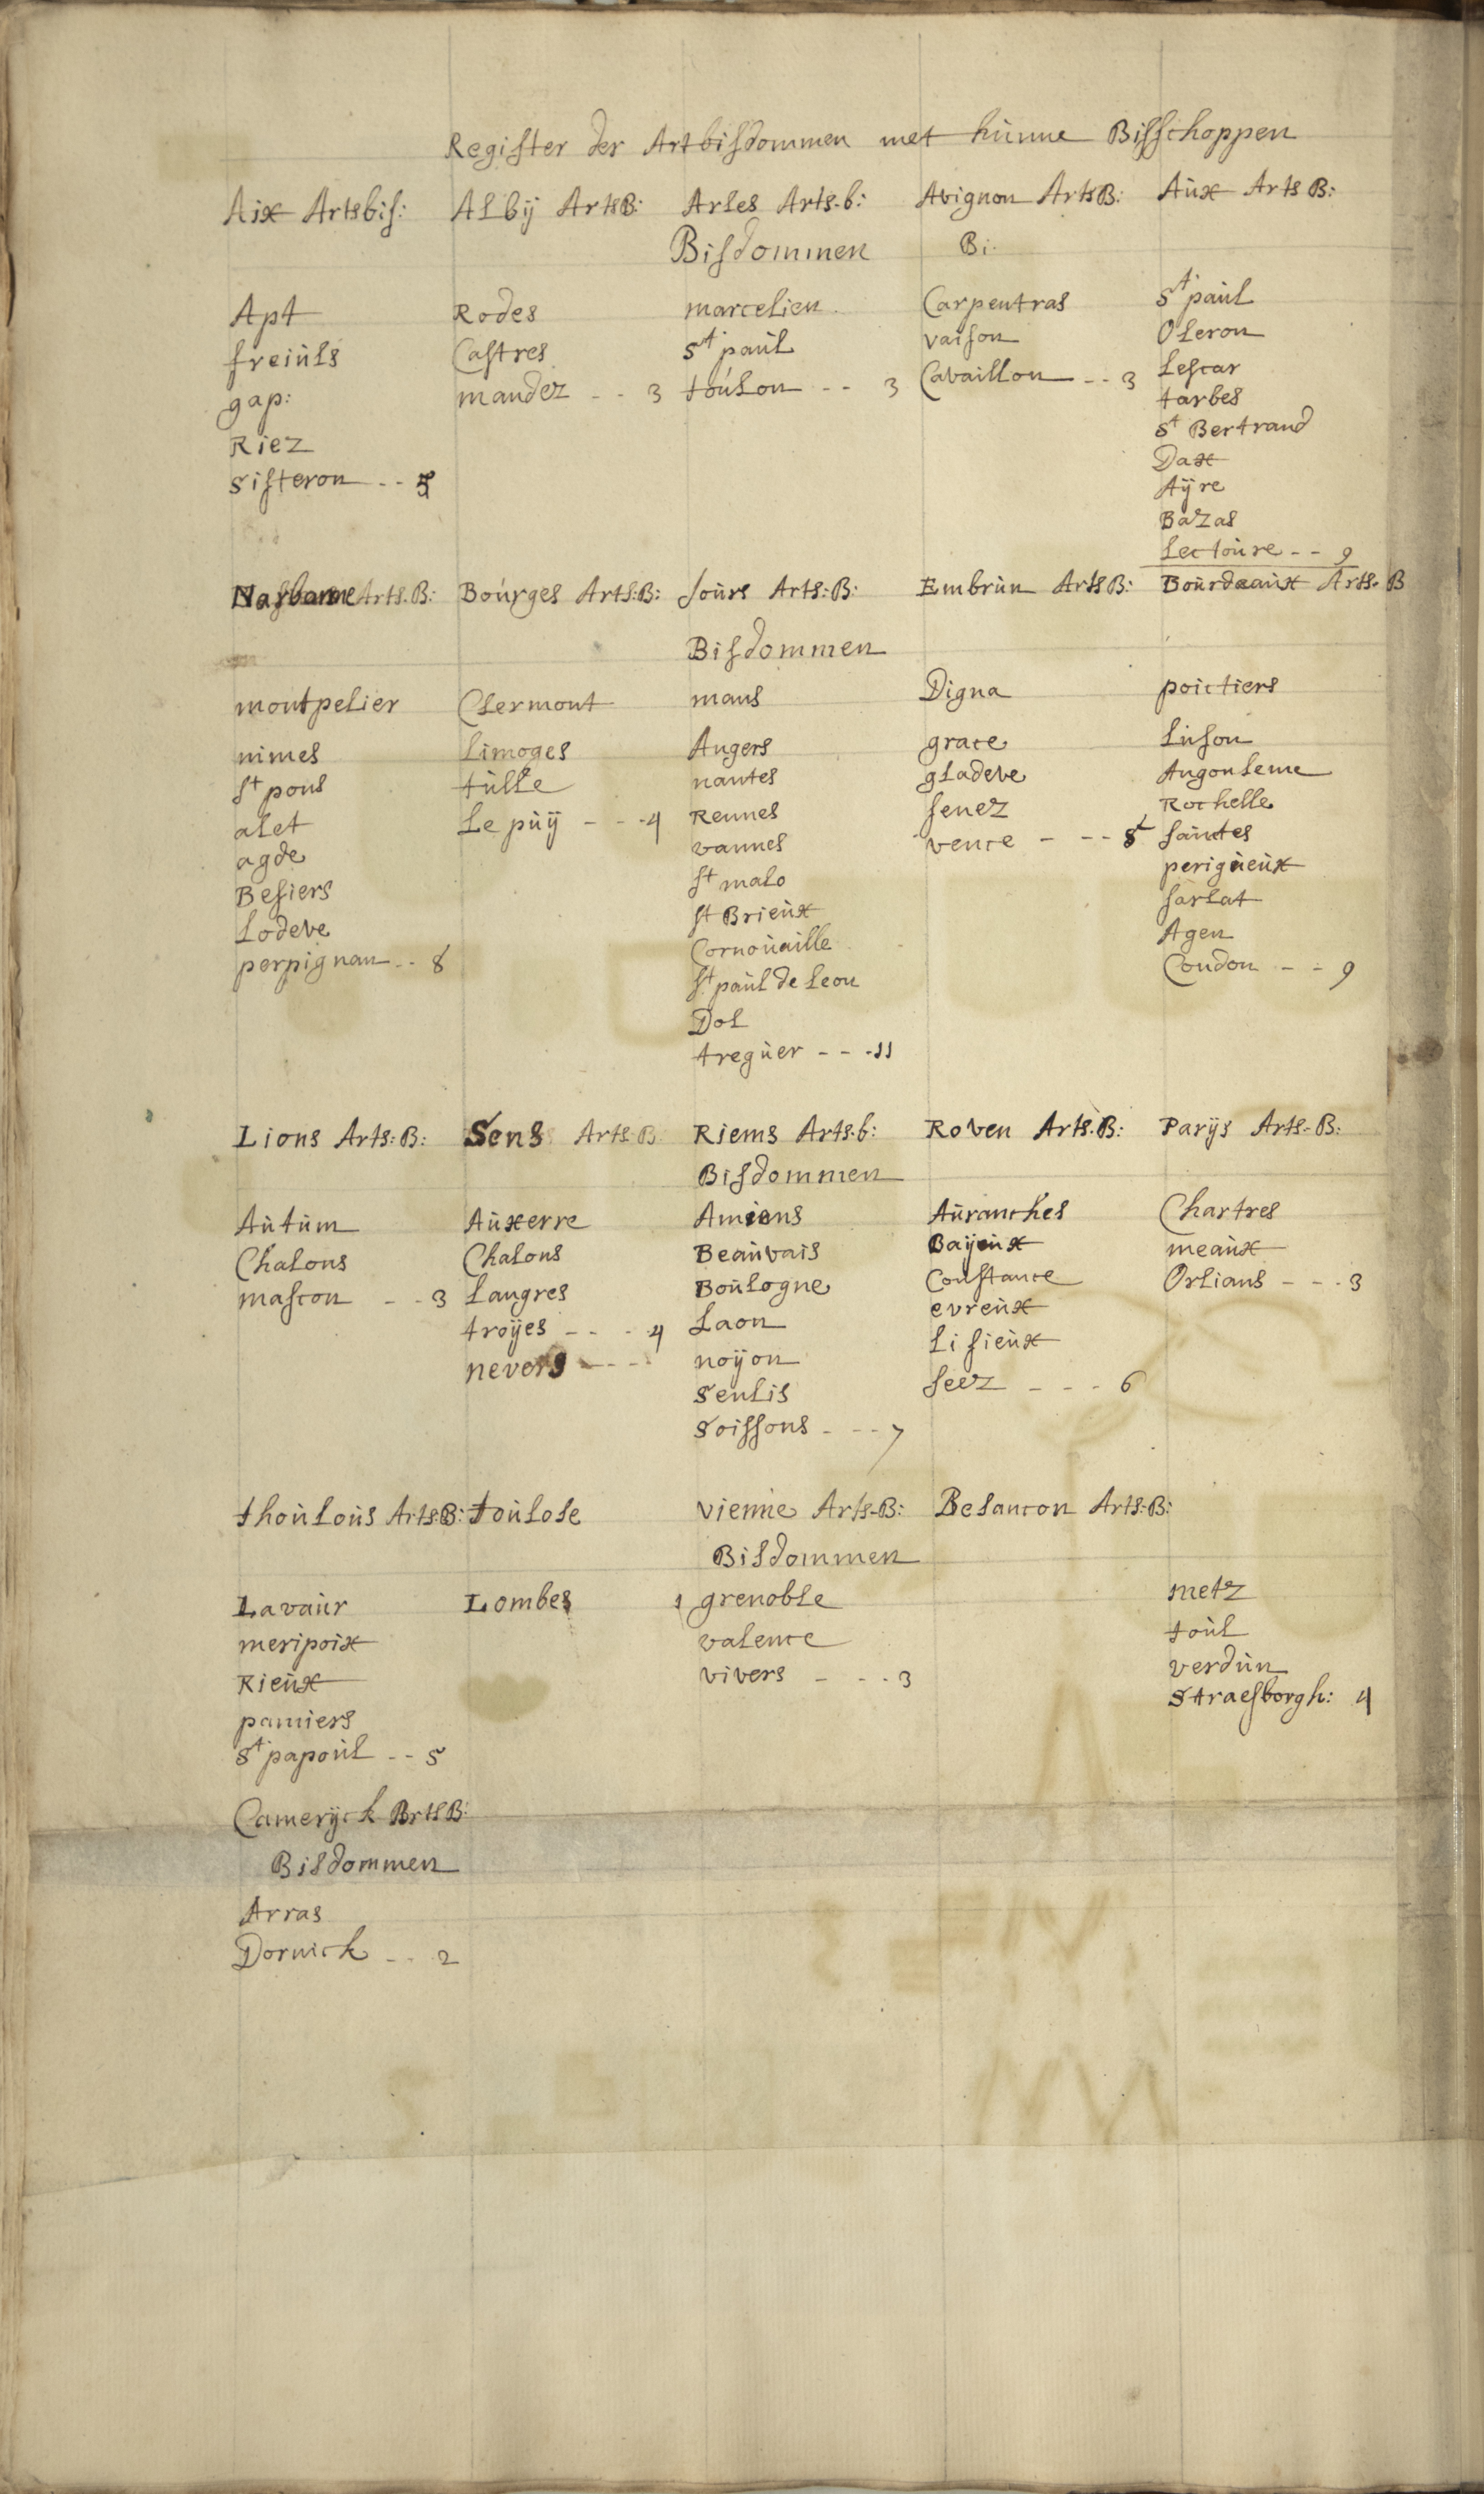 Register der Artbisdommen met hunne Bisschoppen
Aix Artsbis: Alby ArtsB: Arles Arts.b: Avignon ArtsB: Aux Arts B:
Bisdommen Bi.
Apt Rodes marcelien. Carpentras St paul
freiuls Castres St paul vaison Oleron
gap: mandez - - 3 toulon - - 3 Cavaillon - - 3 Lescar
Riez tarbes
Sisteron - - 5 St Bertrand
Dax
Ayre
Bazas
Lectoure - - 9
Narbonne Arts.B: Bourges Arts:B: Tours Arts:B: Embrun ArtsB: Bourdeaux Arts-B
Bisdommen
montpelier Clermont mans Digna poictiers
nimes Limoges Angers grace Luson
st pons tulle nantes gladeve Angouleme
alet Le puy - - -4 Rennes senez Rochelle
agde vannes vence - - - 5 saintes
Besiers st malo perigueux
Lodeve st Brieux sarlat
perpignan - - 8 Cornouaille Agen
st paul de Leon Condon - - 9
Dol
treguer - - -11
Lions Arts:B: Sens Arts.B Riems Arts.b: Roven Arts.B: Parys Arts-B:
Bisdommen
Autum Auxerre Amiens Auranches Chartres
Chalons Chalons Beauvais Bayeux meaux
mascon - - 3 Langres Boulogne Constance Orlians - - - 3
troyes - - - 4 Laon evreux
nevers - - - noyon Lisieux
Senlis seez - - - 6
Soissons - - - 7
thoulous Arts:B: toulose vienne Arts-B: Besancon Arts:B:
Bisdommen
Lavaur Lombes 1 grenoble metz
meripoix valence toul
Rieux vivers - - - 3 verdun
pamiers Straesborgh: 4
St papoul - - 5
Cameryck ArtsB:
Bisdommen
Arras
Dornick - - 2